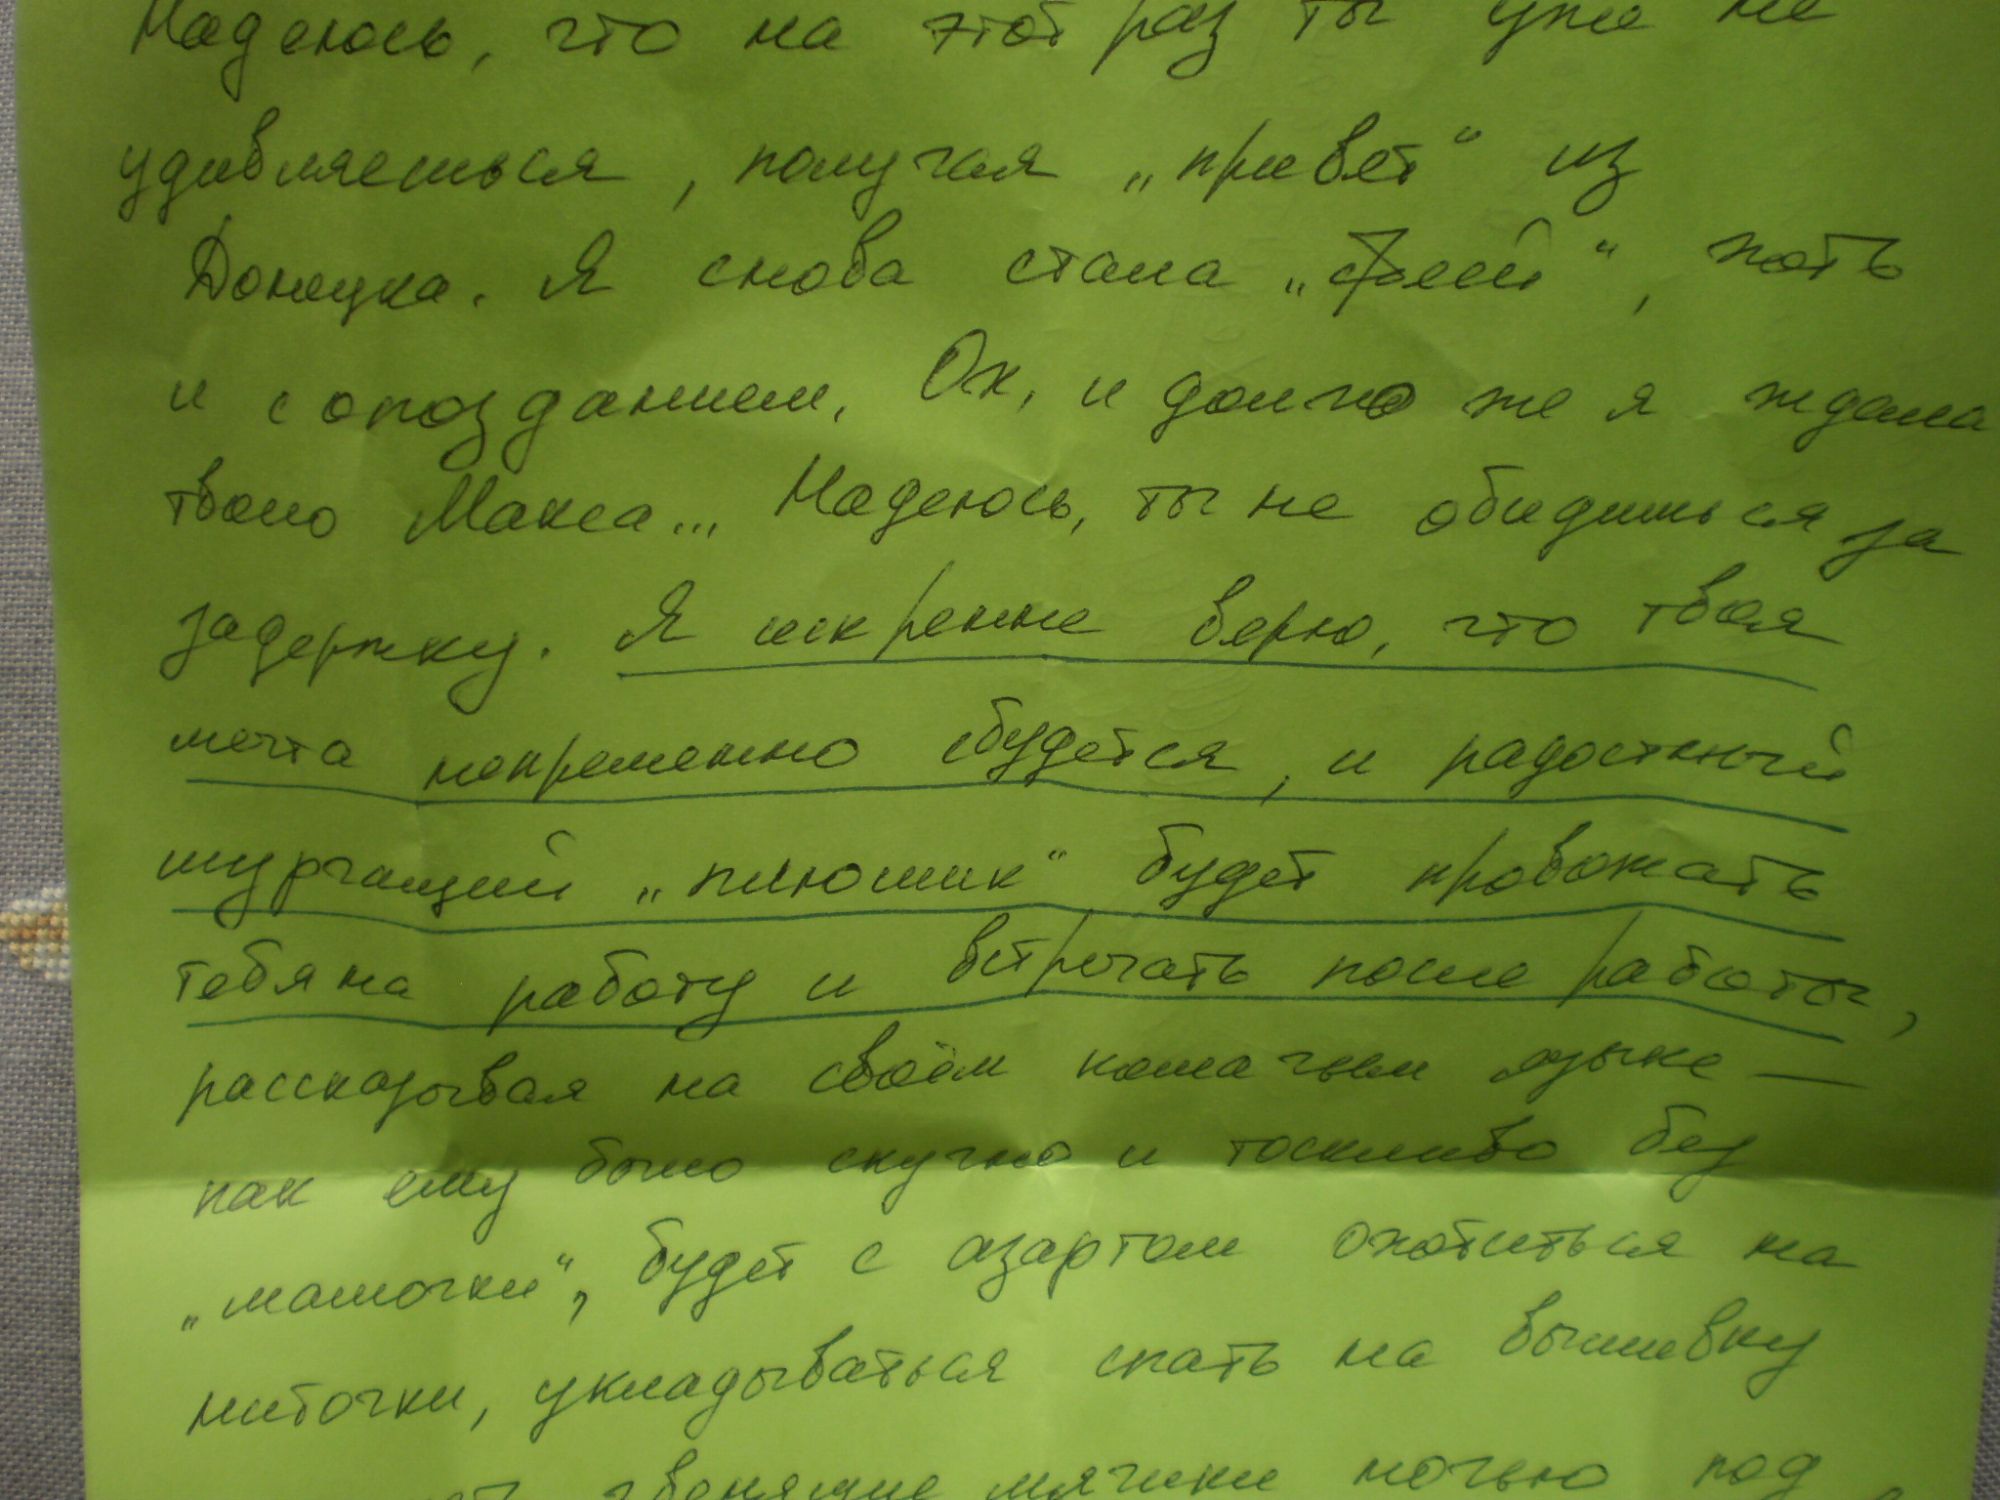 Надеюсь, что на этот раз ты уже не
удивляешься, получая „привет“ из
Донецка. Я снова стала „феей“, хоть
и с опозданием. Ох, и долго же я ждала
твоего Макса... Надеюсь, ты не обидишься за
задержку. Я искренне верю, что твоя
мечта непременно сбудется, и радостный
мурчащий „плюшик“ будет провожать
тебя на работу и встречать после работы,
рассказывая на своём кошачьем языке —
как ему было скучно и тоскливо без
„мамочки“, будет с азартом охотиться на
ниточки, укладываться спать на вышивку
звенящие мячики ночью под